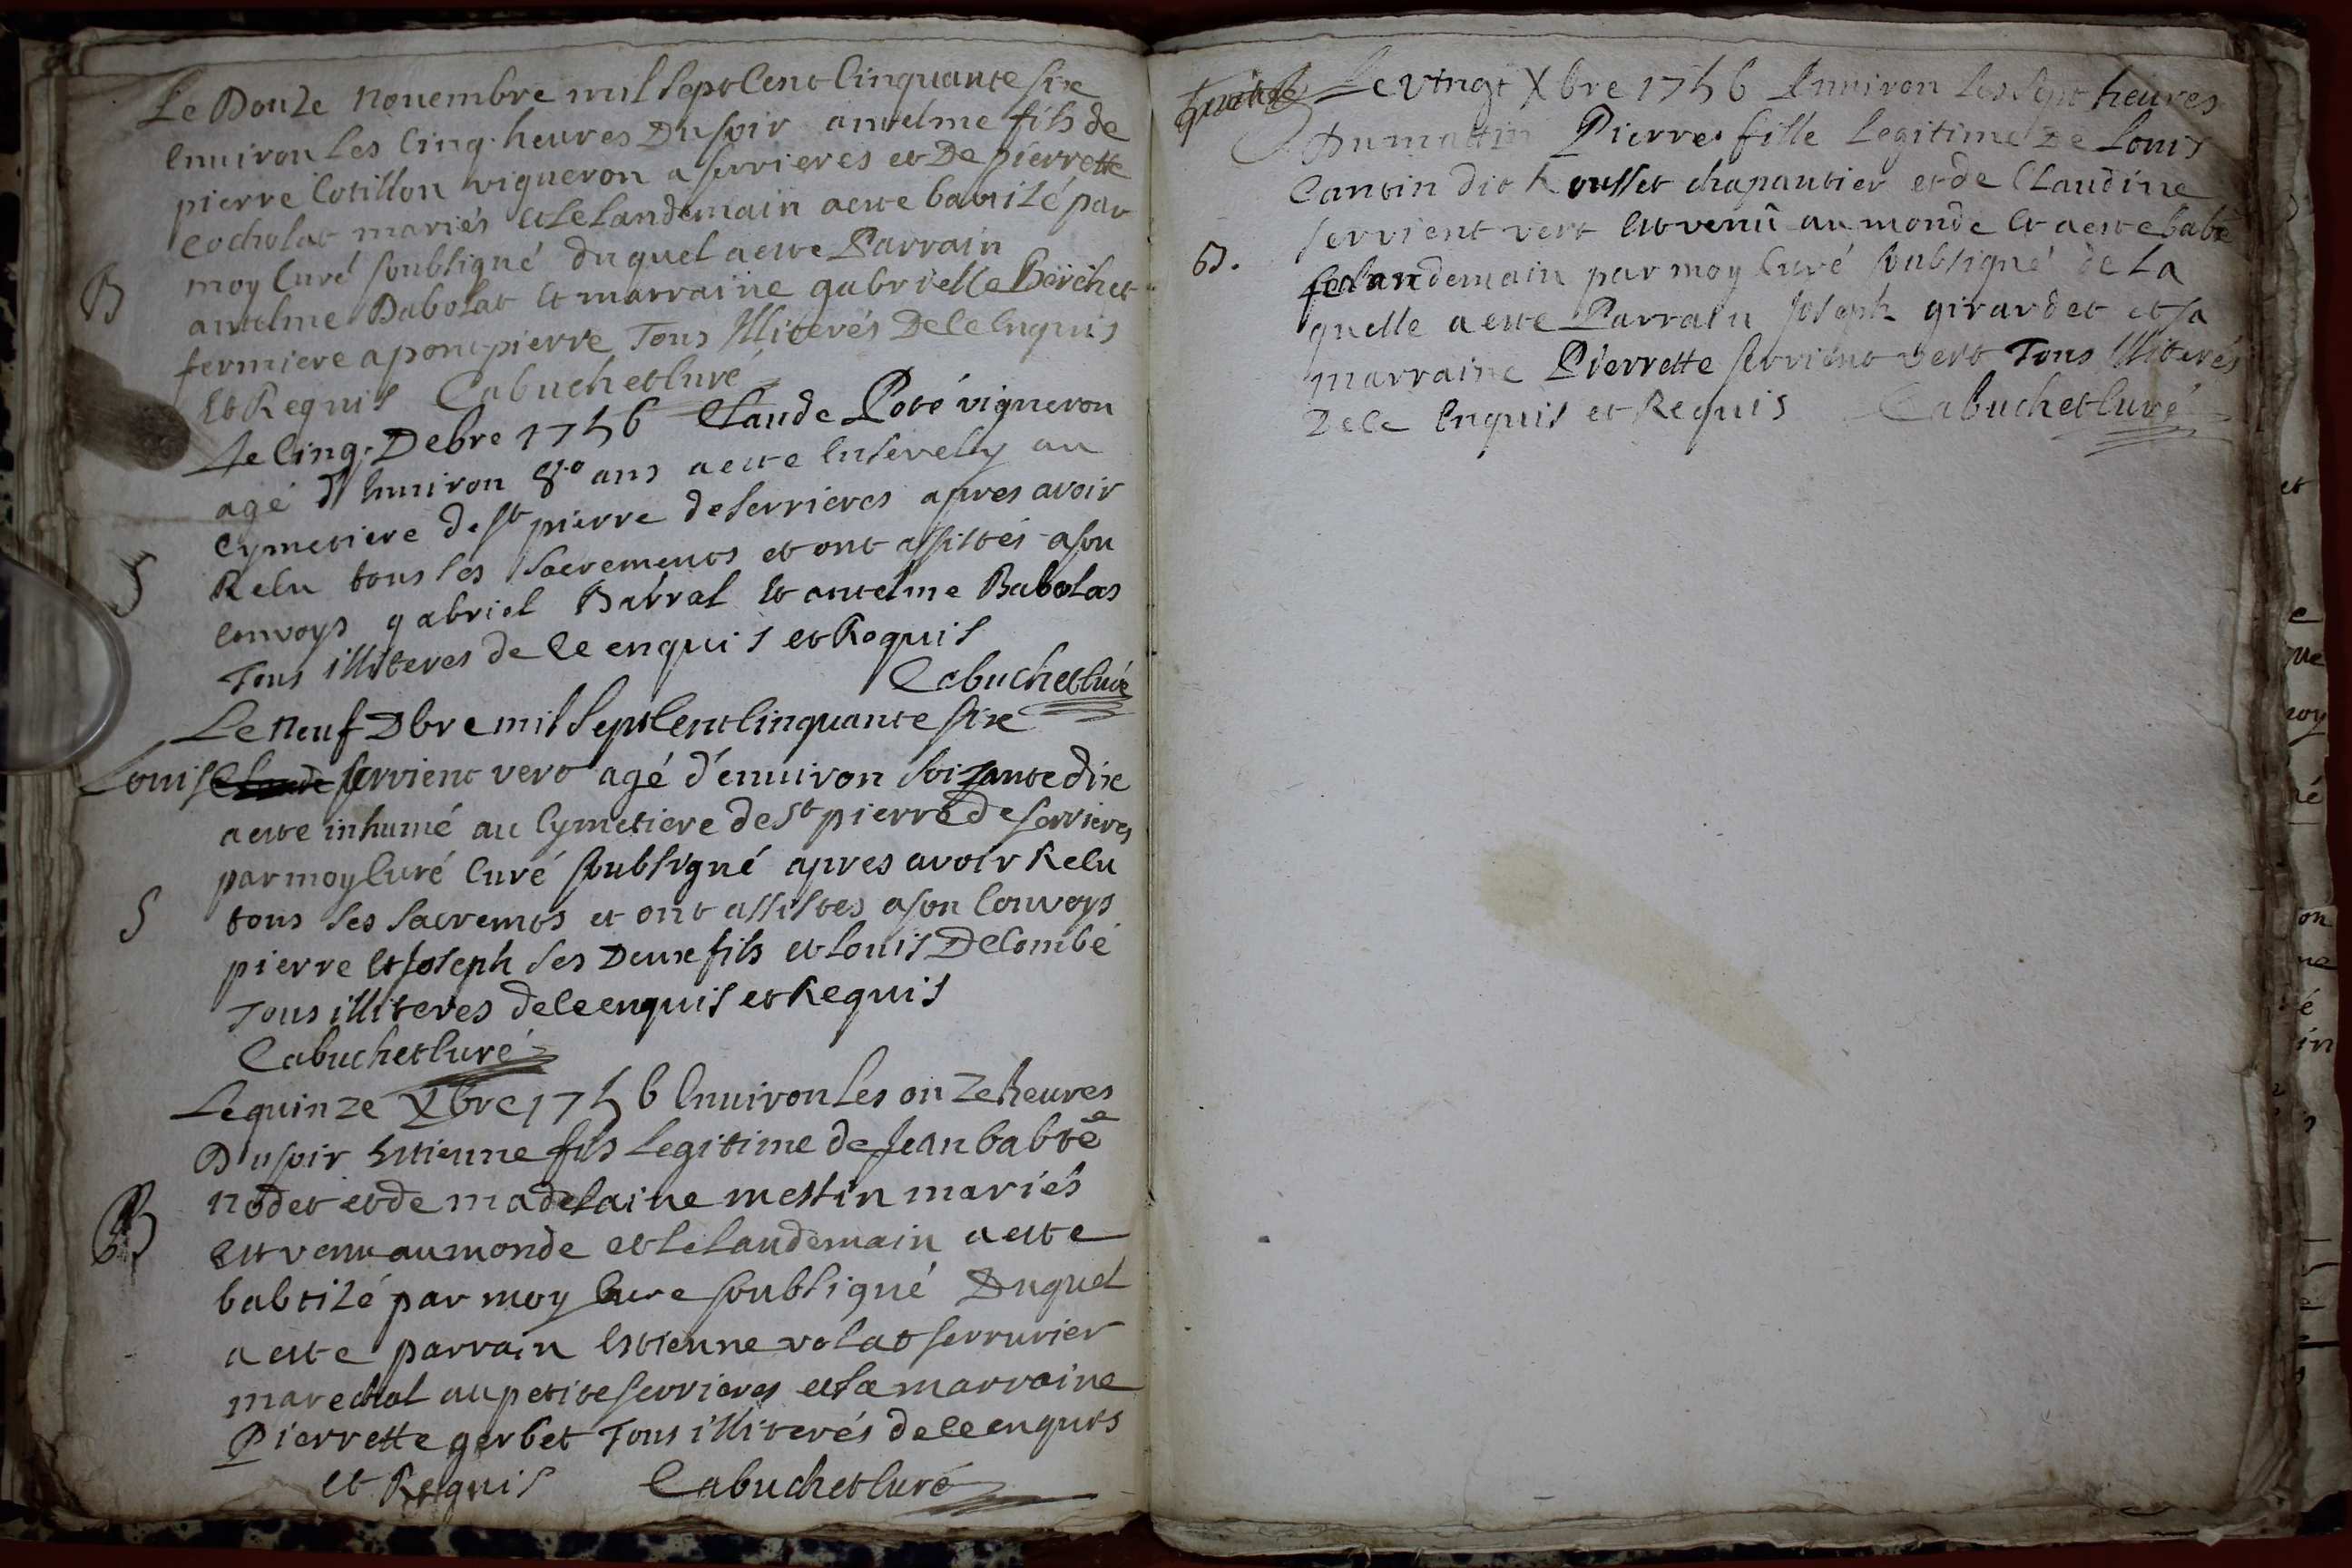 Le Douze novembre mil sept cent cinquante six
environ les cinq heures Du soir antelme fils de
pierre Cotillon vigneron a serrieres et De pierrette
cocholat mariés et le landemain a este batisé par
moy curé soubsigné duquel a este Parrain
B
antelme Babolat et marraine gabrielle Berchet
fermiere a pont pierre Tous illiterés De ce enquis
et Requis Cabuchet curé
Le cinq Debre 1756 Claude Poté vigneron
agé d'environ 80 ans a este ensevely au
cymetiere de st pierre de serrieres apres avoir
S
Relu tous les sacrements et ont assistés a son
convoys gabriel Barral et antelme Babolas
Tous illiteres de ce enquis et Requis
Cabuchet curé
Le neuf Dbre mil sept cent cinquante six
Louis Claude servient vert agé d'environ soizante dix
a este inhumé au cymetiere de st pierre de serrieres
par moy curé curé soubsigné apres avoir Relu
S
tous ses sacremts et ont assistes a son convoys
pierre et joseph ses Deux fils et louis Decombe
Tous illiteres de ce enquis et Requis
Cabuchet curé
Le quinze Xbre 1756 environ les onze heures
Du soir Estienne fils legitime de Jean babte
nodet et de madelaine mestin mariés
B
est venu au monde et le landemain a este
babtisé par moy cure soubsigné Duquel
a este parrain Estienne volat serrurier
marechal au petit serrieres et la marraine
Pierrette gerbet Tous illiterés de ce enquis
et Requis Cabuchet curé
Le vingt Xbre 1756 Environ les sept heures
Du matin Pierre fille legitime De Louis
Cantin dit Rousset chapantier et de Claudine
servient vert est venû au monde et a este babte
B.
le landemain par moy curé soubsigné de la
quelle a este Parrain joseph girardet et sa
marraine Pierrette servient vert Tous illiterés
De ce enquis et Requis Cabuchet curé